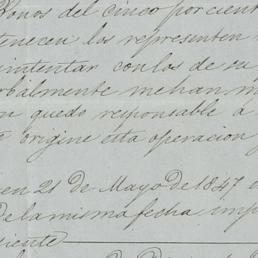 Bonos del cinco por cient
tenecen los representen
intentar con los de su
rbalmente me han m
n quedo responsable á
origine esta operacion
en 21 de Mayo de 1847
de la misma fecha imp
diente